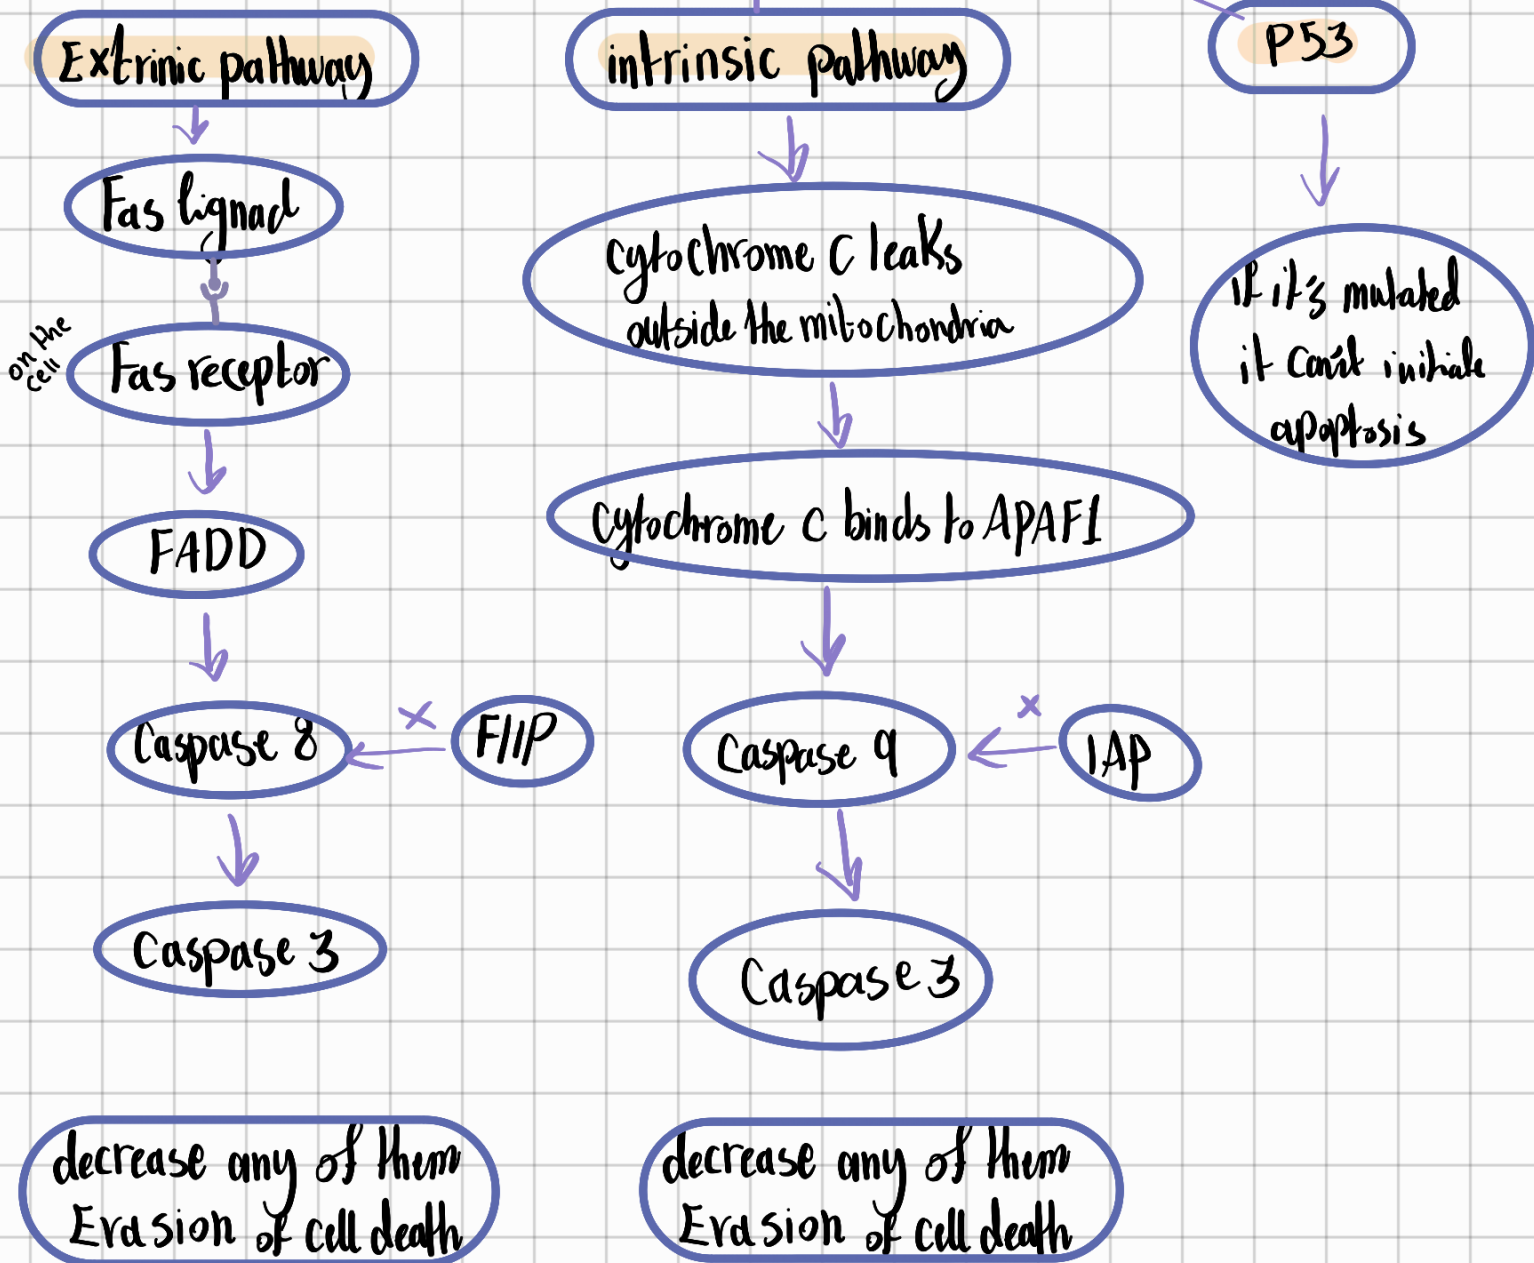 Extrinic pathway
Fas lignad
on the
cell
Fas receptor
FADD
Caspase 8
x
FlIP
Caspase 3
decrease any of them
Evasion of cell death
intrinsic pathway
cytochrome C leaks
outside the mitochondria
cytochrome c binds to APAF1
Caspase 9
x
IAP
Caspase 3
decrease any of them
Evasion of cell death
P53
if it's mutated
it can't initiate
apoptosis